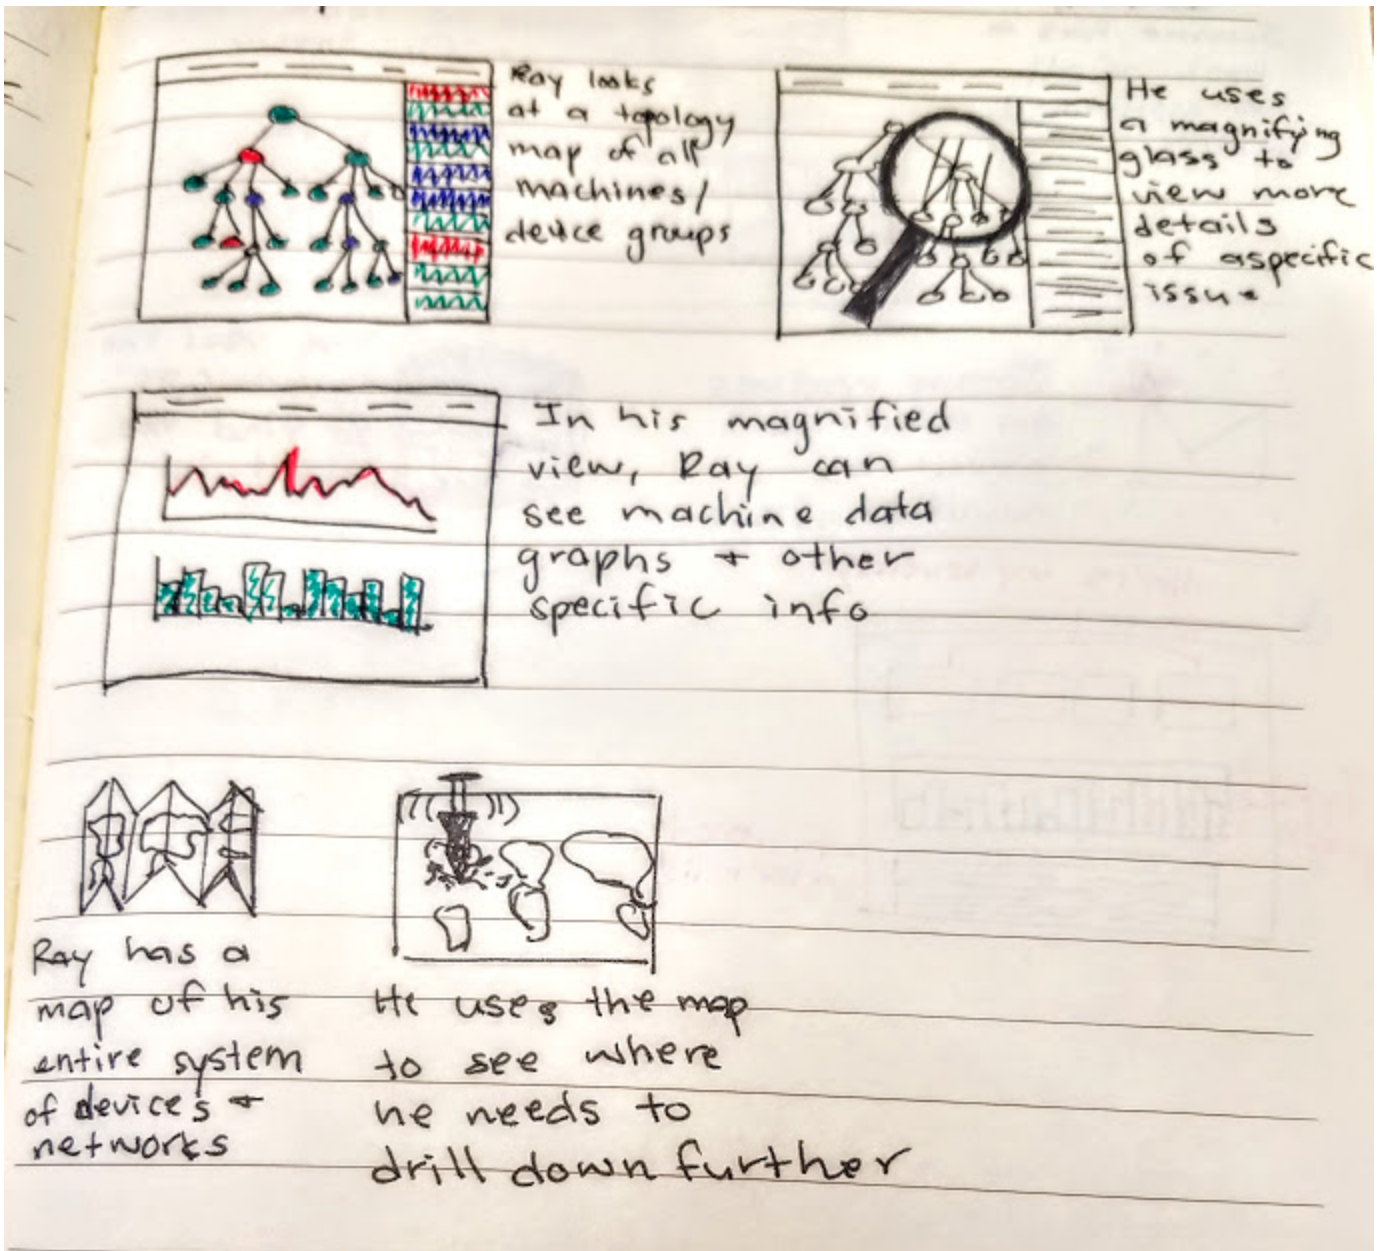 Ray looks
at a topology
map of all
machines/
device groups
He uses
a magnifying
glass to
view more
details
of aspecific
issue
In his magnified
view, Ray can
see machine data
graphs + other
specific info
Ray has a
map of his
entire system
of devices +
networks
He uses the map
to see where
he needs to
drill down further